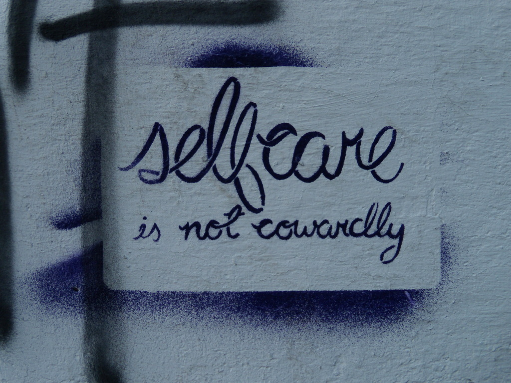 selfcare
is not cowardly